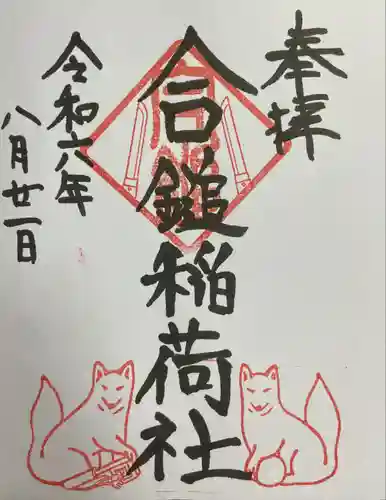 奉拝
合鎚稲荷社
令和六年
八月廿一日